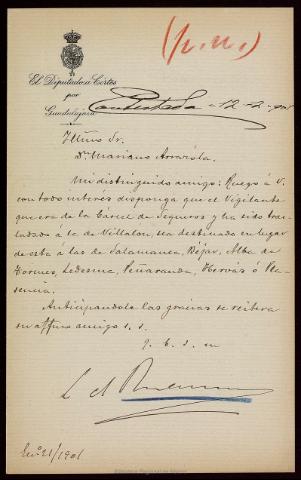 (p.n.)
El Diputado a Cortes
por
Guadalajara
Contestada - 12-2-901
Illmo Sr.
Dn. Mariano Arrazola.
Mi distinguido amigo: Ruego á V.
con todo interés disponga que el Vigilante
que era de la Cárcel de Sequeros y ha sido tras-
ladado á la de Villalon, sea destinado en lugar
de esta á las de Salamanca, Béjar, Alba de
Tormes, Ledesma, Peñaranda, Hervás ó Pla-
sencia.
Anticipandole las gracias se reitera
su affmo amigo s. s.
q. b. s. m
En.º 21/1901
Biblioteca Nacional de España